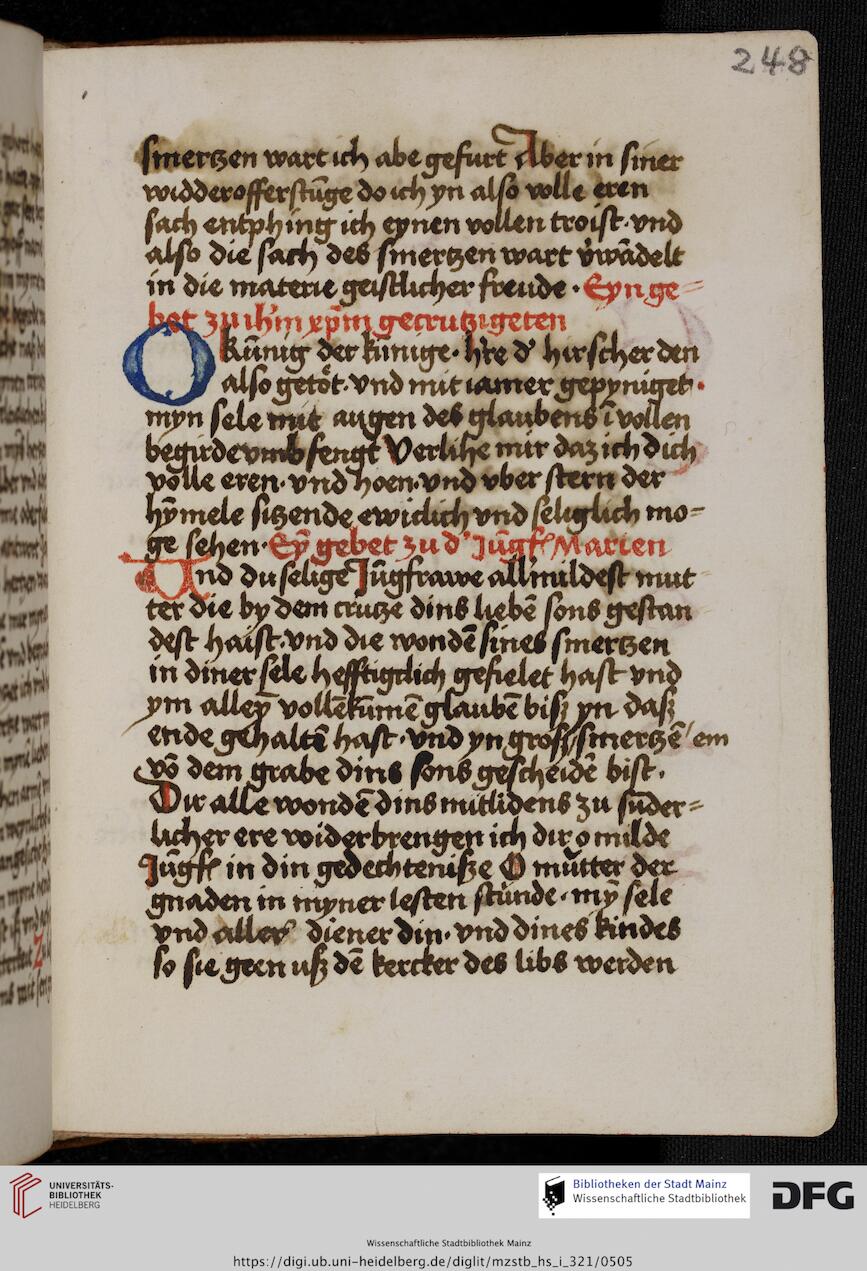 248
smertzen wart ich abe gefurt Aber in siner
widderofferstūge do ich yn also volle eren
sach entphing ich eynen vollen troist · vnd
also die sach des smertzen wart v̓wādelt
in die materie geistlicher freude · Eyn ge=
bet zu ih̄m xp̄m gecrutzigeten
O kūnig der kūnige · h're d' hirscher den
also getöt · vnd mit iamer gepyniget ·
myn sele mit augen des glaubens ī vollen
begirde vmbfengt Verlihe mir daz ich dich
volle eren · vnd hoen · vnd vber stern der
hȳmele sitzende ewiclich vnd seliglich mo=
ge sehen · Eȳ gebet zu d' Jūgfr Marien
Vnd du selige Jūgfrawe allmildest mut
ter die by dem crutze dins liebē sons gestan
dest haist · vnd die wondē sines smertzen
in diner sele hefftigclich gefielet hast vnd
ym alleȳ vollēkūmē glaubē bisz yn dasz
ende gehaltē hast · vnd yn grosz smertzē em
vō dem grabe dins sons gescheidē bist ·
Dir alle wondē dins mitlidens zu sūder=
licher ere widerbrengen ich dir o milde
Jūgfr in din gedechtenisze O mutter der
gnaden in myner lesten stunde · mȳ sele
vnd aller diener din · vnd dines kindes
so sie geen usz dē kercker des libs werden
UNIVERSITÄTS-
BIBLIOTHEK
HEIDELBERG
Bibliotheken der Stadt Mainz
Wissenschaftliche Stadtbibliothek
DFG
Wissenschaftliche Stadtbibliothek Mainz
https://digi.ub.uni-heidelberg.de/diglit/mzstb_hs_i_321/0505